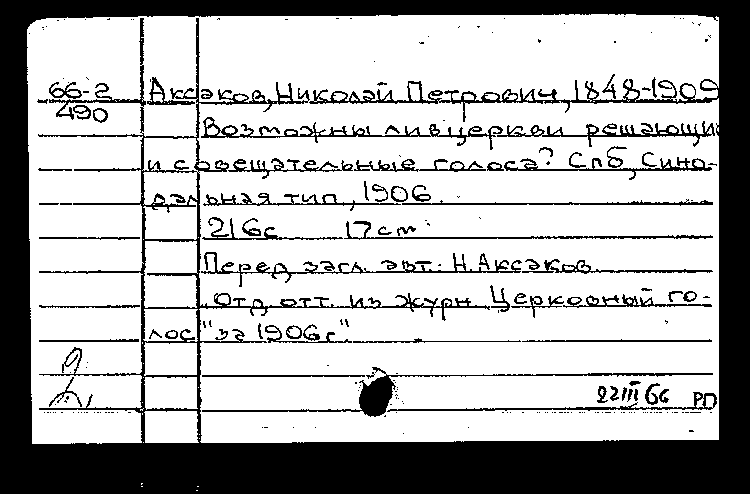 66-2 Аксаков, Николай Петрович, 1848-1909
490
Возможны ли в церкви решающи
и совещательные голоса? Спб, Сино-
дальная тип, 1906.
216с 17см
Перед загл. авт.: Н. Аксаков
Отд. отт. из журн. Церковный го-
лос "за 1906г".
22 III 66 РП